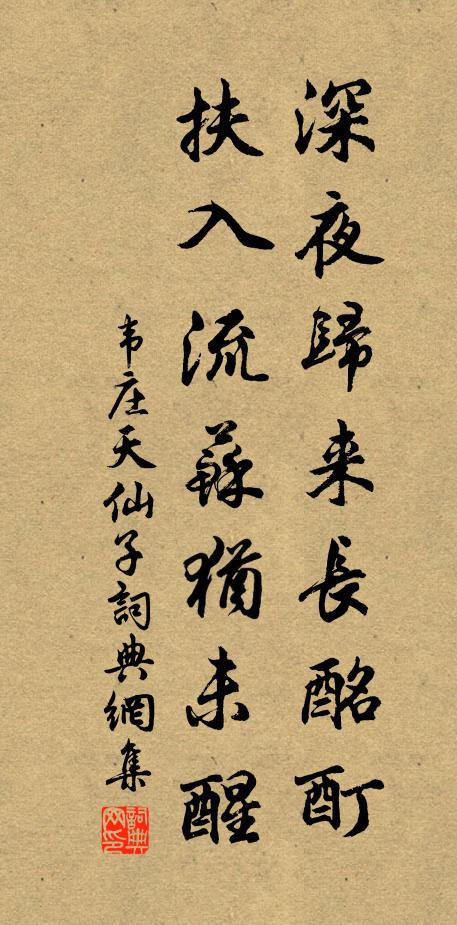 深夜歸来長酩酊
扶入流蘇猶未醒
韦庄天仙子詞典網集
詞典网印